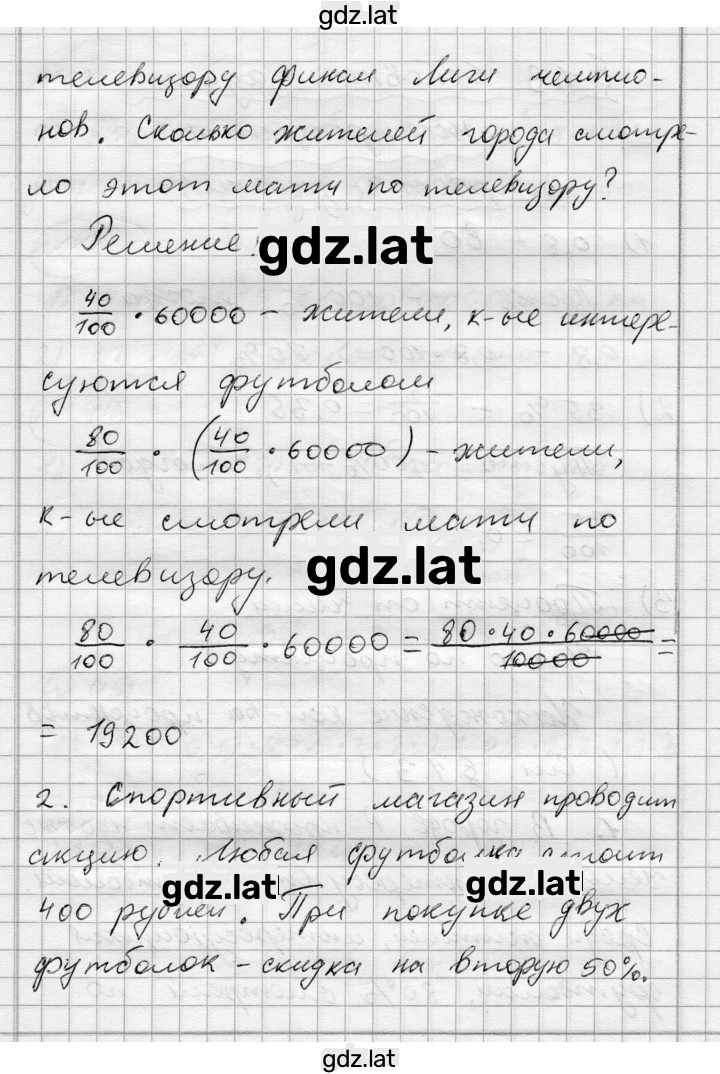 gdz.lat
телевизору финал Лиги чемпио-
нов. Сколько жителей города смотре-
ло этот матч по телевизору?
Решение:
gdz.lat
40/100 · 60000 – жители, к-ые интере-
суются футболом
80/100 · (40/100 · 60000) – жители,
к-ые смотрели матч по
телевизору.
gdz.lat
80/100 · 40/100 · 60000 = 80 · 40 · 60000/10000 =
= 19200
2. Спортивный магазин проводит
акцию. Любая футболка стоит
gdz.lat
gdz.lat
400 рублей. При покупке двух
футболок – скидка на вторую 50%.
gdz.lat